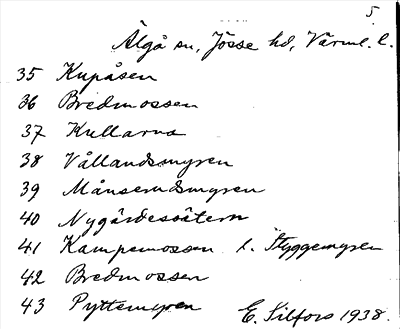 5
Älgå sn, Jösse hd, Värml. l.
35 Kupåsen
36 Bredmossen
37 Kullarna
38 Vållandsmyren
39 Månserudsmyren
40 Nygårdessätern
41 Kampemossen l. Styggemyren
42 Bredmossen
43 Pyttemyren
E. Silfors 1938.